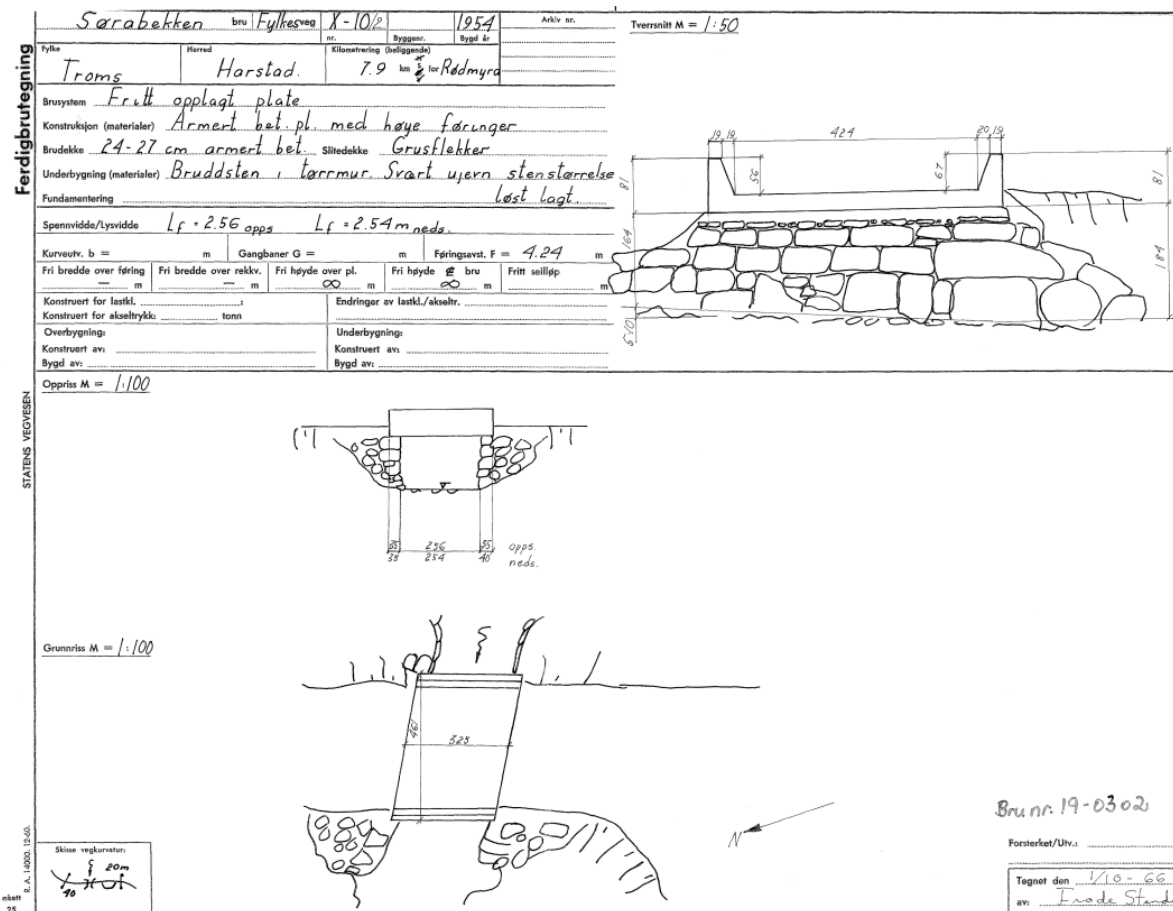 Ferdigbrutegning
STATENS VEGVESEN
R. A. 14000. 12-60.
25
Sørabekken bru Fylkesveg X-10/2 1954 Arkiv nr.
nr. Byggenr. Bygd år
Fylke Herred Kilometrering (beliggende)
Troms Harstad. 7.9 km for Rødmyra
Brusystem Fritt opplagt plate
Konstruksjon (materialer) Armert bet. pl. med høye føringer
Brudekke 24-27 cm armert bet. Slitedekke Grusflekker
Underbygning (materialer) Bruddsten i tørrmur. Svært ujevn stenstørrelse
Fundamentering løst lagt.
Spennvidde/Lysvidde Lf = 2.56 opps Lf = 2.54 m neds.
Kurveutv. b = m Gangbaner G = m Føringsavst. F = 4.24 m
Fri bredde over føring Fri bredde over rekkv. Fri høyde over pl. Fri høyde bru Fritt seilløp
— m — m ∞ m ∞ m m
Konstruert for lastkl. : Endringer av lastkl./akseltr.
Konstruert for akseltrykk: tonn
Overbygning: Underbygning:
Konstruert av: Konstruert av:
Bygd av: Bygd av:
Tverrsnitt M = 1:50
19 19 424 20 19
81 56 67 81
164 184
Oppriss M = 1:100
35 256 35 opps.
35 254 40 neds.
Grunnriss M = 1:100
461
323
N
Skisse vegkurvatur:
20m
40
Bru nr. 19-0302
Forsterket/Utv.:
Tegnet den 1/10-66
av: Frode